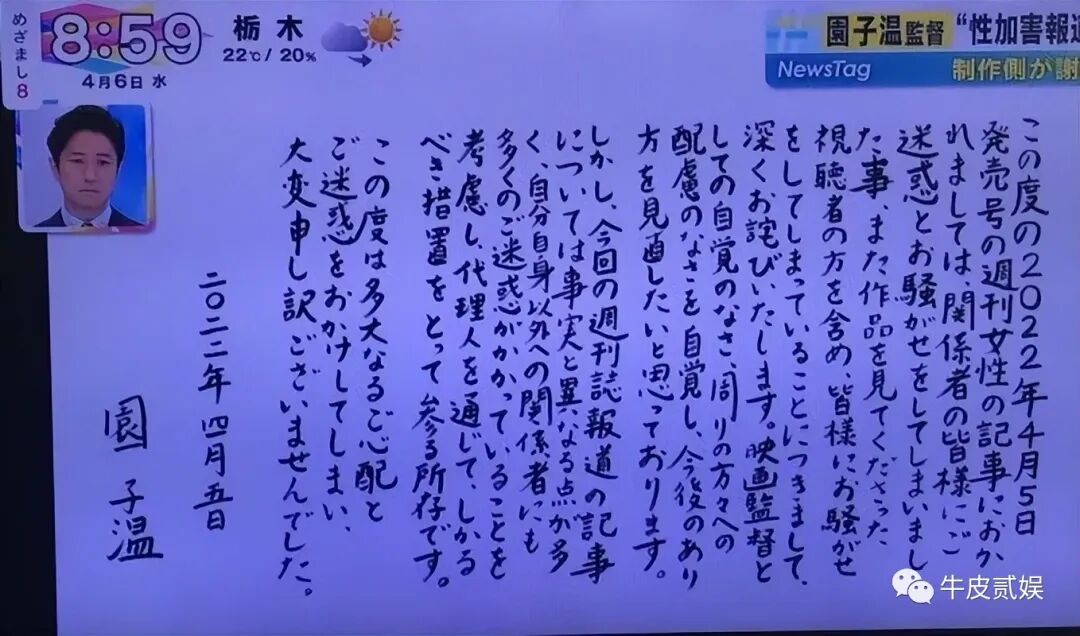 めざまし8
8:59
4月6日 水
栃木
22℃/20%
園子温監督 “性加害報道
NewsTag
制作側が謝
この度の2022年4月5日
発売号の週刊女性の記事におか
れましては、関係者の皆様にご
迷惑とお騒がせをしてしまいまし
た事、また作品を見てくださった
視聴者の方を含め、皆様にお騒がせ
をしてしまっていることにつきまして、
深くお詫びいたします。映画監督と
しての自覚のなさ、周りの方々への
配慮のなさを自覚し、今後のあり
方を見直したいと思っております。
しかし、今回の週刊誌報道の記事
については事実と異なる点が多
く、自分自身以外への関係者にも
多くのご迷惑がかかっていることを
考慮し、代理人を通じて、しかる
べき措置をとって参る所存です。
この度は多大なるご心配と
ご迷惑をおかけしてしまい、
大変申し訳ございませんでした。
二〇二二年 四月五日
園 子温
牛皮贰娱